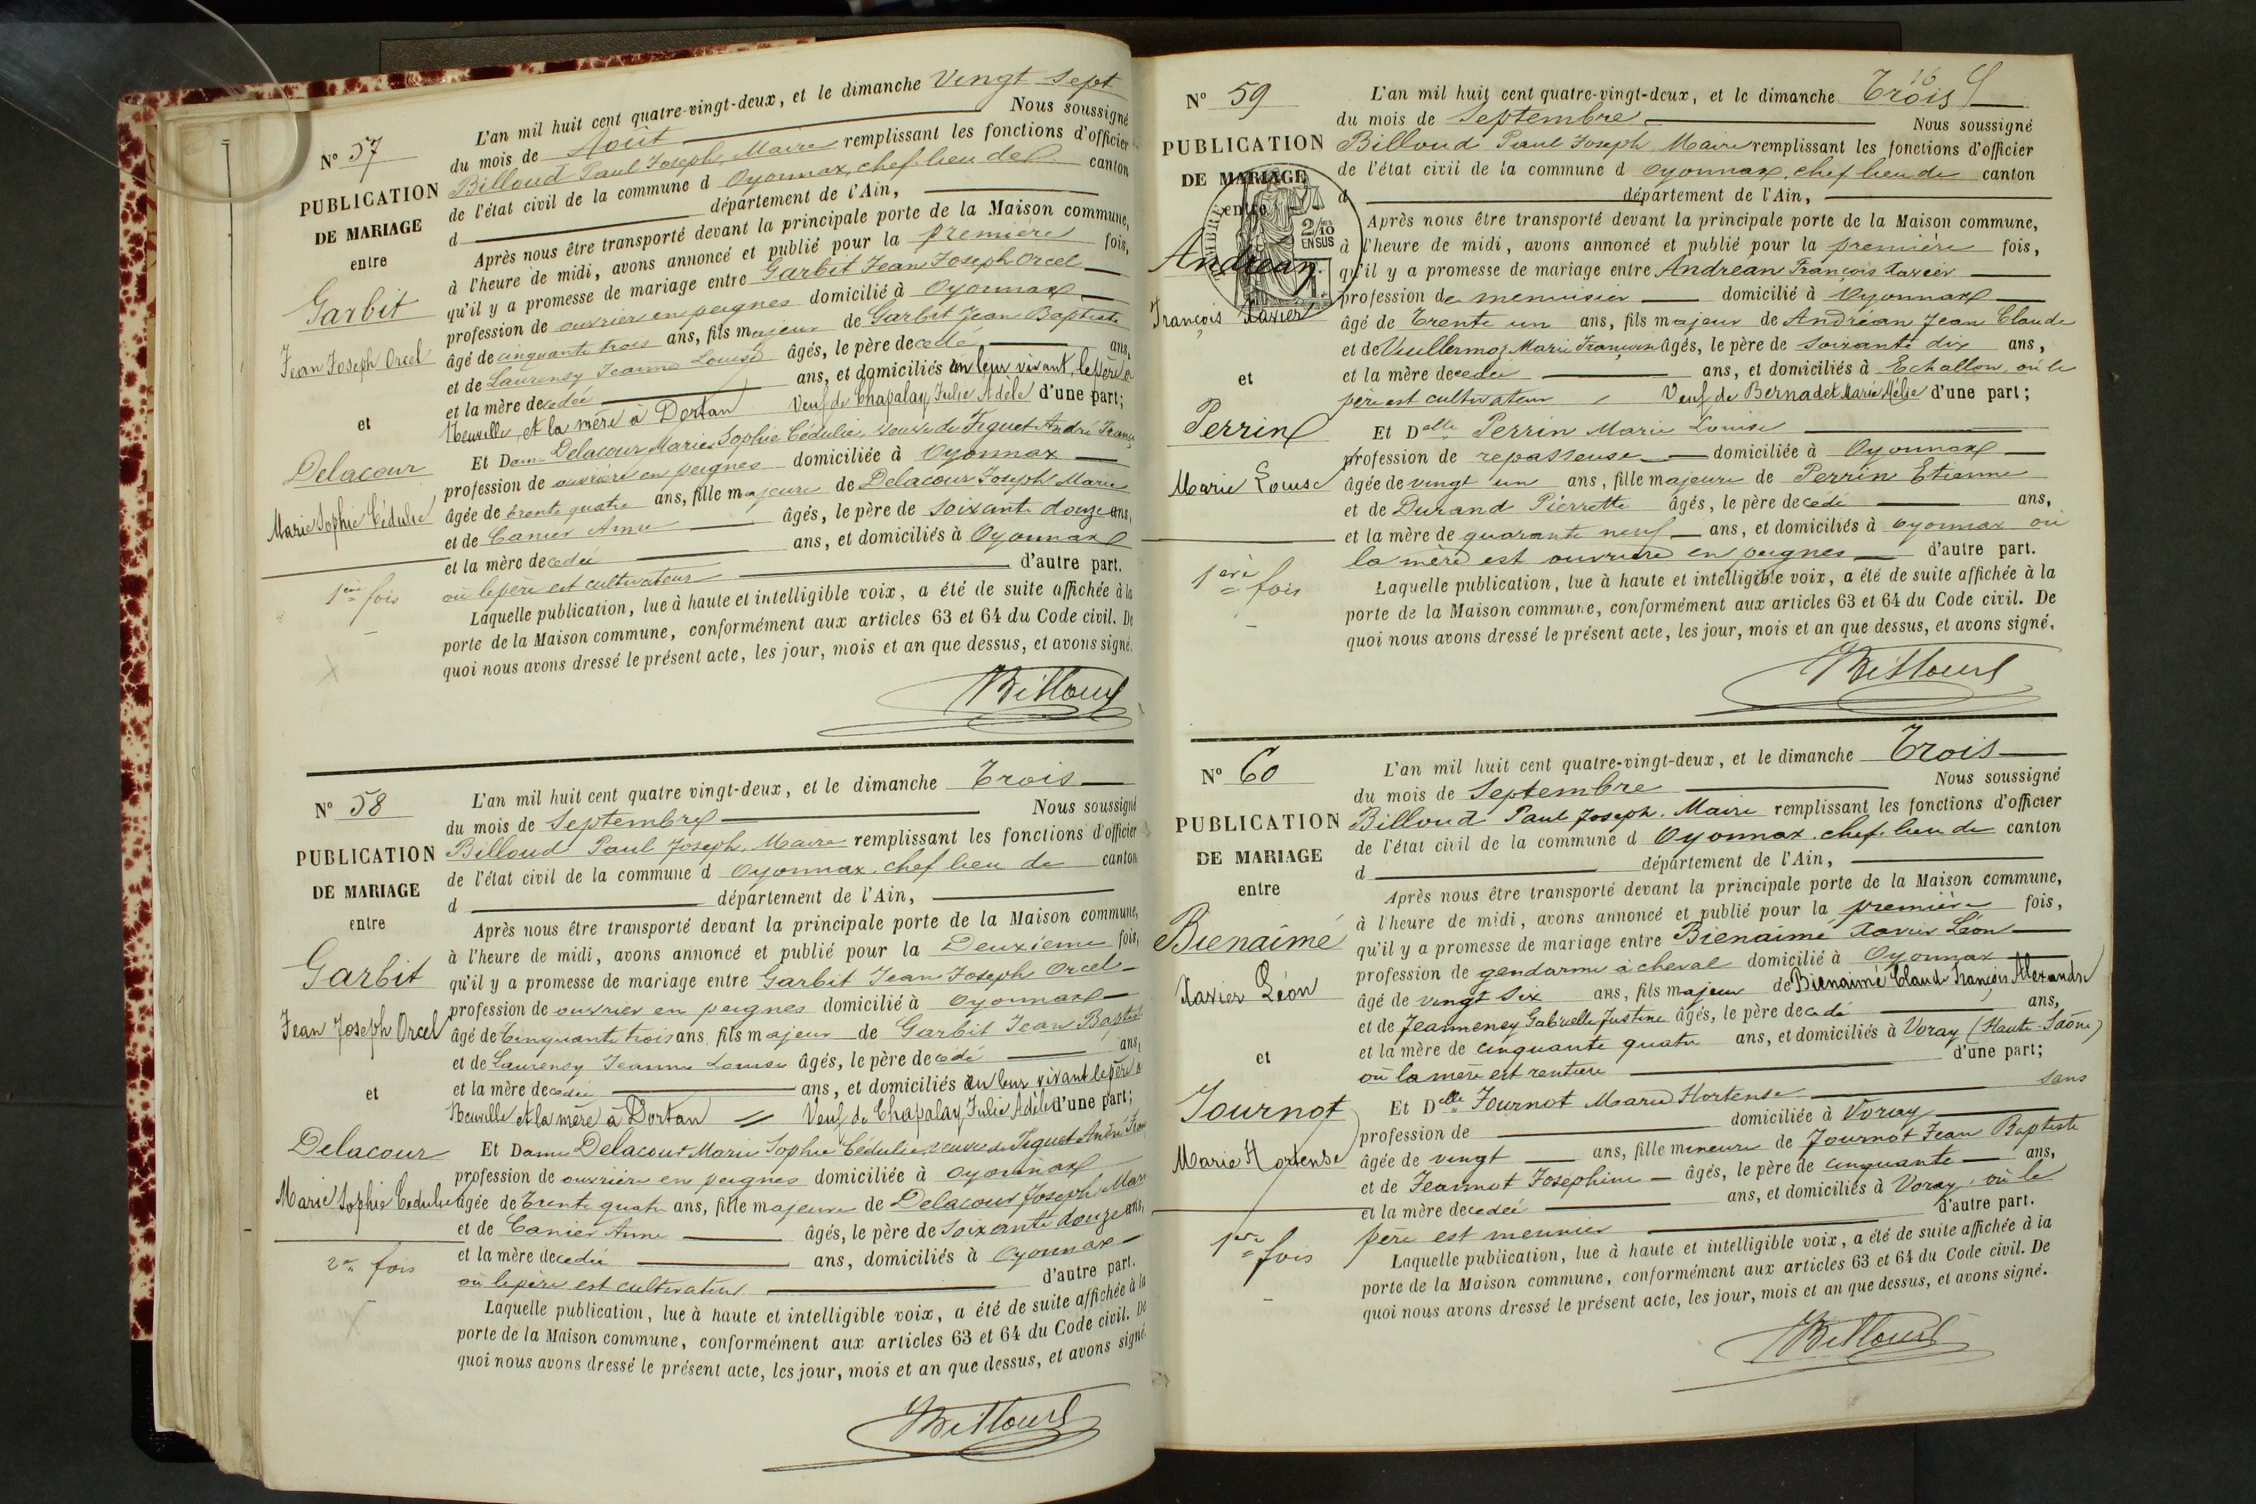 N° 57
PUBLICATION
DE MARIAGE
entre
Garbit
Jean Joseph Orcel
et
Delacour
Marie Sophie Cédulie
1ère fois
L'an mil huit cent quatre-vingt-deux, et le dimanche Vingt Sept
du mois de Août Nous soussigné
Billoud Paul Joseph, Maire remplissant les fonctions d'officier
de l'état civil de la commune d Oyonnax, chef lieu de canton
d département de l'Ain,
Après nous être transporté devant la principale porte de la Maison commune,
à l'heure de midi, avons annoncé et publié pour la première fois,
qu'il y a promesse de mariage entre Garbit Jean Joseph Orcel
profession de ouvrier en peignes domicilié à Oyonnax
âgé de cinquante trois ans, fils majeur de Garbit Jean Baptiste
et de Laurency Jeanne Louise âgés, le père decedé ans,
et la mère decedée ans, et domiciliés en leur vivant, le père à
Neuville et la mère à Dortan Veuf de Chapalay Julie Adèle d'une part;
Et Dame Delacour Marie Sophie Cédulie, veuve de Figuet André Franç
profession de ouvrière en peignes domiciliée à Oyonnax
âgée de trente quatre ans, fille majeure de Delacour Joseph Marie
et de Canier Anne âgés, le père de soixante douze ans,
et la mère decedée ans, et domiciliés à Oyonnax
où le père est cultivateur d'autre part.
Laquelle publication, lue à haute et intelligible voix, a été de suite affichée à la
porte de la Maison commune, conformément aux articles 63 et 64 du Code civil. De
quoi nous avons dressé le présent acte, les jour, mois et an que dessus, et avons signé.
Billoud
N° 58
PUBLICATION
DE MARIAGE
entre
Garbit
Jean Joseph Orcel
et
Delacour
Marie Sophie Cedulie
2e fois
L'an mil huit cent quatre vingt-deux, et le dimanche Trois
du mois de Septembre Nous soussigné
Billoud Paul Joseph, Maire remplissant les fonctions d'officier
de l'état civil de la commune d Oyonnax, chef lieu de canton
d département de l'Ain,
Après nous être transporté devant la principale porte de la Maison commune,
à l'heure de midi, avons annoncé et publié pour la Deuxième fois,
qu'il y a promesse de mariage entre Garbit Jean Joseph Orcel
profession de ouvrier en peignes domicilié à Oyonnax
âgé de Cinquante trois ans, fils majeur de Garbit Jean Baptist
et de Laurency Jeanne Louise âgés, le père decedé ans,
et la mère decedée ans, et domiciliés en leur vivant le père à
Neuville et la mère à Dortan Veuf de Chapalay Julie Adèle d'une part;
Et Dame Delacour Marie Sophie Cédulie, veuve de Figuet André Fran
profession de ouvrière en peignes domiciliée à Oyonnax
âgée de Trente quatre ans, fille majeure de Delacour Joseph Marie
et de Canier Anne âgés, le père de Soixante douze ans,
et la mère decedée ans, domiciliés à Oyonnax
où le père est cultivateur d'autre part.
Laquelle publication, lue à haute et intelligible voix, a été de suite affichée à la
porte de la Maison commune, conformément aux articles 63 et 64 du Code civil. De
quoi nous avons dressé le présent acte, les jour, mois et an que dessus, et avons signé.
Billoud
16
N° 59
PUBLICATION
DE MARIAGE
entre
TIMBRE
2/10
EN SUS
Andréan
François Xavier
et
Perrin
Marie Louise
1ère fois
L'an mil huit cent quatre-vingt-deux, et le dimanche Trois
du mois de Septembre Nous soussigné
Billoud Paul Joseph, Maire remplissant les fonctions d'officier
de l'état civil de la commune d Oyonnax, chef lieu de canton
d département de l'Ain,
Après nous être transporté devant la principale porte de la Maison commune,
à l'heure de midi, avons annoncé et publié pour la première fois,
qu'il y a promesse de mariage entre Andréan François Xavier
profession de menuisier domicilié à Oyonnax
âgé de Trente un ans, fils majeur de Andréan Jean Claude
et de Vuillermoz Marie Françoise âgés, le père de soixante dix ans,
et la mère decedée ans, et domiciliés à Echallon, où le
père est cultivateur Veuf de Bernadet Marie Mélie d'une part;
Et Delle Perrin Marie Louise
profession de repasseuse domiciliée à Oyonnax
âgée de vingt un ans, fille majeure de Perrin Etienne
et de Durand Pierrette âgés, le père decédé ans,
et la mère de quarante neuf ans, et domiciliés à Oyonnax où
la mère est ouvrière en peignes d'autre part.
Laquelle publication, lue à haute et intelligible voix, a été de suite affichée à la
porte de la Maison commune, conformément aux articles 63 et 64 du Code civil. De
quoi nous avons dressé le présent acte, les jour, mois et an que dessus, et avons signé.
Billoud
N° 60
PUBLICATION
DE MARIAGE
entre
Bienaimé
Xavier Léon
et
Journot
Marie Hortense
1ère fois
L'an mil huit cent quatre-vingt-deux, et le dimanche Trois
du mois de Septembre Nous soussigné
Billoud Paul Joseph, Maire remplissant les fonctions d'officier
de l'état civil de la commune d Oyonnax, chef lieu de canton
d département de l'Ain,
Après nous être transporté devant la principale porte de la Maison commune,
à l'heure de midi, avons annoncé et publié pour la première fois,
qu'il y a promesse de mariage entre Bienaimé Xavier Léon
profession de gendarme à cheval domicilié à Oyonnax
âgé de vingt six ans, fils majeur de Bienaimé Claude François Alexandre
et de Jeanneney Gabrielle Justine âgés, le père decedé ans,
et la mère de cinquante quatre ans, et domiciliés à Voray (Haute-Saône)
où la mère est rentière d'une part;
Et Delle Journot Marie Hortense sans
profession de domiciliée à Voray
âgée de vingt ans, fille mineure de Journot Jean Baptiste
et de Jeannot Joséphine âgés, le père de cinquante ans,
et la mère decedée ans, et domiciliés à Voray, où le
père est meunier d'autre part.
Laquelle publication, lue à haute et intelligible voix, a été de suite affichée à la
porte de la Maison commune, conformément aux articles 63 et 64 du Code civil. De
quoi nous avons dressé le présent acte, les jour, mois et an que dessus, et avons signé.
Billoud